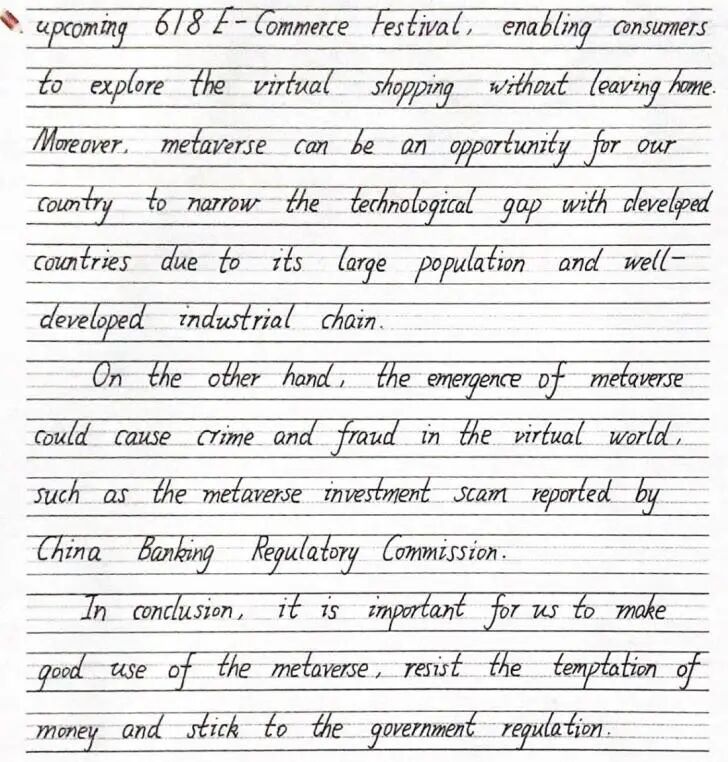 upcoming 618 E-Commerce Festival, enabling consumers
to explore the virtual shopping without leaving home.
Moreover, metaverse can be an opportunity for our
country to narrow the technological gap with developed
countries due to its large population and well-
developed industrial chain.
On the other hand, the emergence of metaverse
could cause crime and fraud in the virtual world,
such as the metaverse investment scam reported by
China Banking Regulatory Commission.
In conclusion, it is important for us to make
good use of the metaverse, resist the temptation of
money and stick to the government regulation.